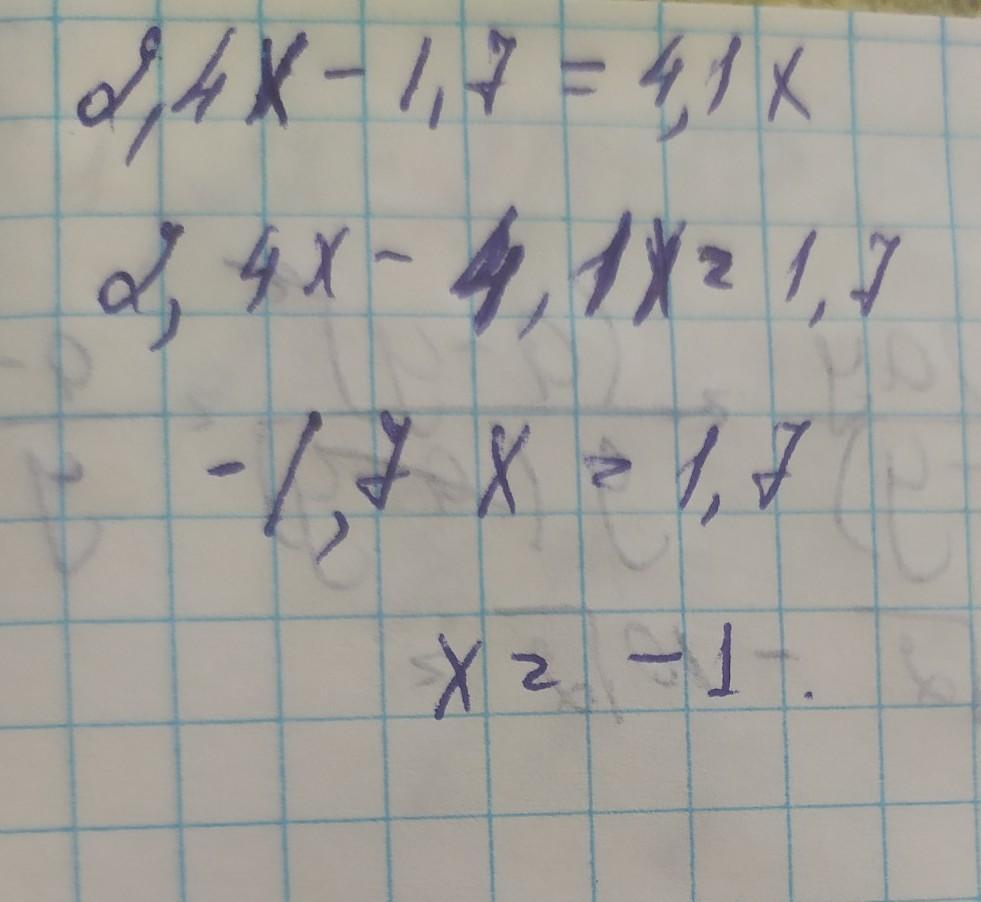 2,4x - 1,7 = 4,1x
2,4x - 4,1x = 1,7
-1,7x = 1,7
x = -1.